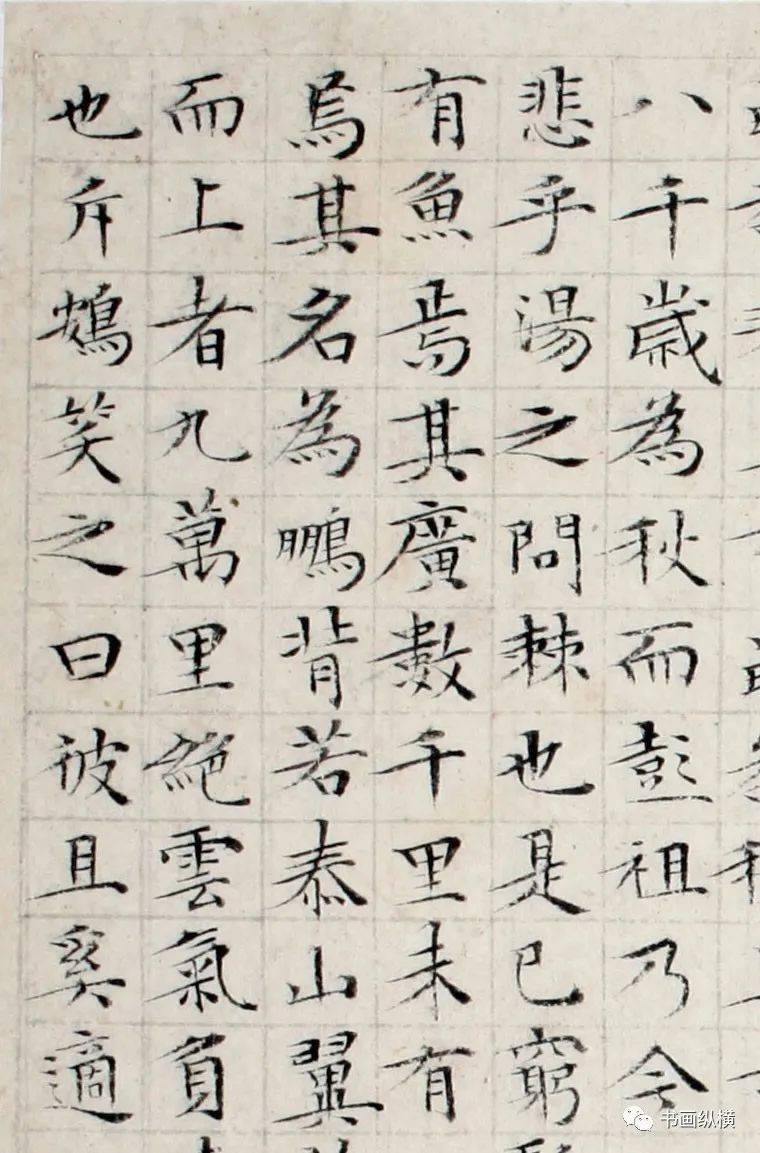 八千歲為秋而彭祖乃今
悲乎湯之問棘也是已窮
有魚焉其廣數千里未有
焉其名為鵬背若泰山翼
而上者九萬里絕雲氣負
也斥鴳笑之曰彼且奚適
书画纵横